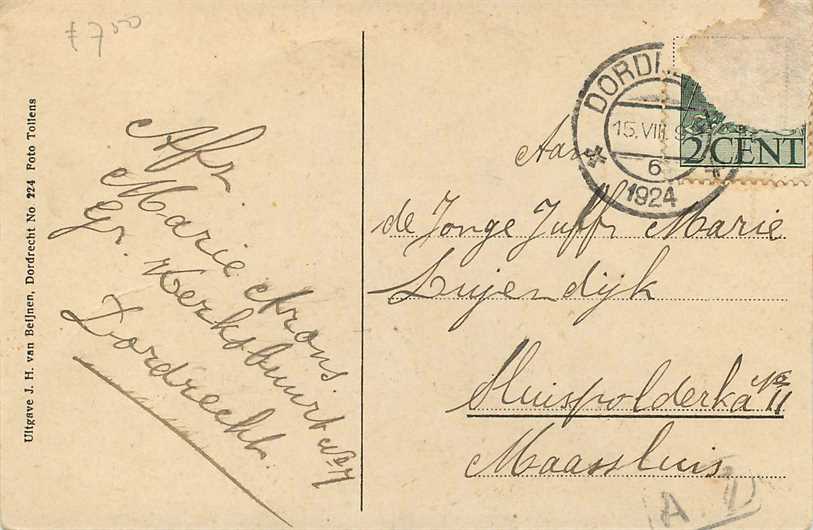 ƒ 7.00
Uitgave J. H. van Beijnen, Dordrecht No 224 Foto Tollens
Afz.
Marie Arons
Gr. Kerksbuurt No 7
Dordrecht.
DORD
15.VIII. 9
6
1924
2 CENT
Aan
de Jonge Juffr Marie
Luijendijk
Sluispolderka No 11
Maassluis
A.